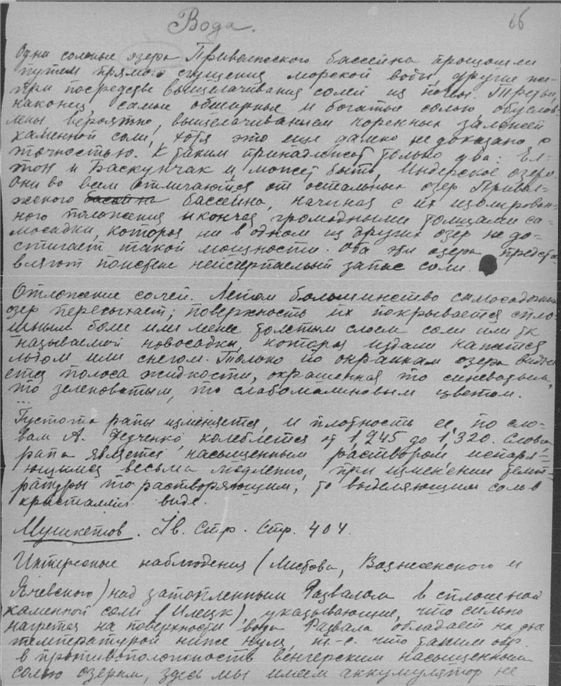 66
Вода.
Одни соляные озера Приволжского бассейна произошли
путем прямого сгущения морской воды, другие
при посредстве выщелачивания солей из почвы. Третьи,
наконец, самые обширные и богатые солью обуслов-
лены вероятно, выщелачиванием коренных залежей
каменной соли, хотя это еще далеко не доказано с
точностью. К таким принадлежат только два: Ел-
тон и Баскунчак и может быть, Индерское озеро.
Они во всем отличаются от остальных озер Привол-
жского бассейна, начиная с их изолирован-
ного положения и кончая громадными толщами са-
мосадки, которая ни в одном из других озер не до-
стигает такой мощности. Оба эти озера предста-
вляют поистине неисчерпаемый запас соли.
Отложение солей. Летом большинство самосадочных
озер пересыхает; поверхность их покрывается спло-
шным более или менее толстым слоем соли или так
называемой новосадки, которая издали кажется
льдом или снегом. Только по окраинам озера
полоса жидкости, окрашенная то
то зеленоватым, то слабомалиновым цветом.
...
Густота рапы изменяется, и плотность ее, по сло-
вам А. Федченко колеблется от до 1,320.
рапа является насыщенным раствором
весьма медленно, при изменении темпе-
ратуры то растворяющим, то выделяющим соль в
кристалл. виде.
Мушкетов. Стр. 404.
Интересные наблюдения (Листова, Вознесенского и
Ячевского) над затопленным Развалом в сплошной
каменной соли (Илецк), указывающие, что сильно
нагретая на поверхности вода Развала обладает на дне
температурой ниже нуля, т.-е. что таким обр.
в противоположность венгерским насыщенным
солью озерам, здесь мы имеем аккумулятор не